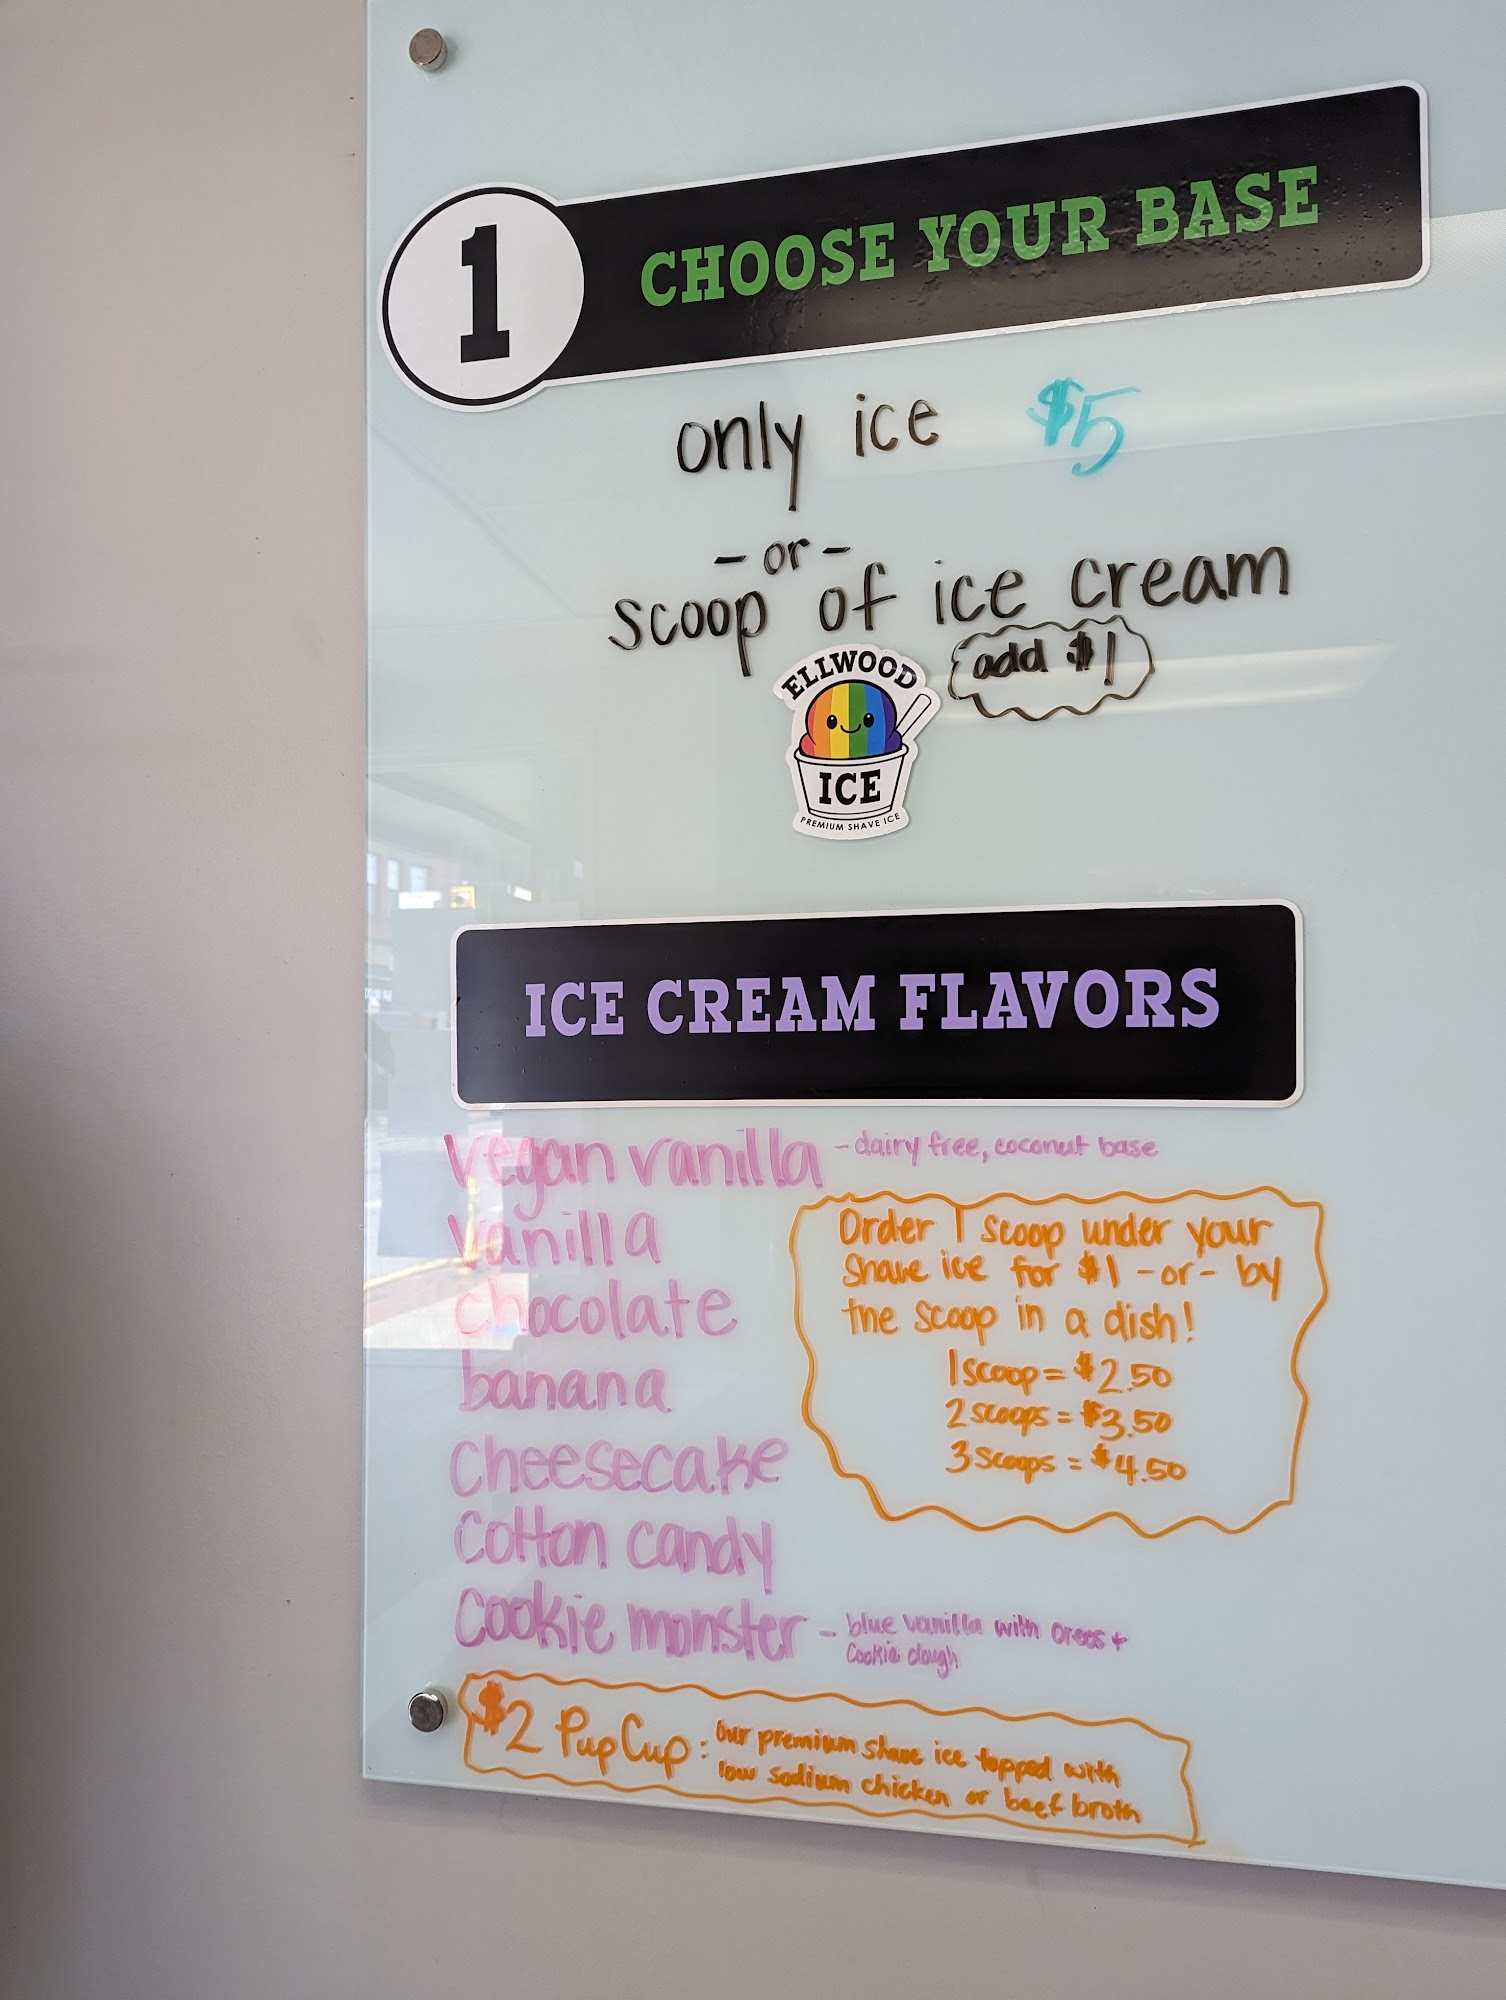 1
CHOOSE YOUR BASE
only ice $5
-or-
scoop of ice cream
add $1
ELLWOOD
ICE
PREMIUM SHAVE ICE
ICE CREAM FLAVORS
vegan vanilla - dairy free, coconut base
vanilla
chocolate
banana
cheesecake
cotton candy
cookie monster - blue vanilla with oreos +
cookie dough
Order 1 scoop under your
shave ice for $1 -or- by
the scoop in a dish!
1 scoop = $2.50
2 scoops = $3.50
3 scoops = $4.50
$2 Pup Cup: our premium shave ice topped with
low sodium chicken or beef broth